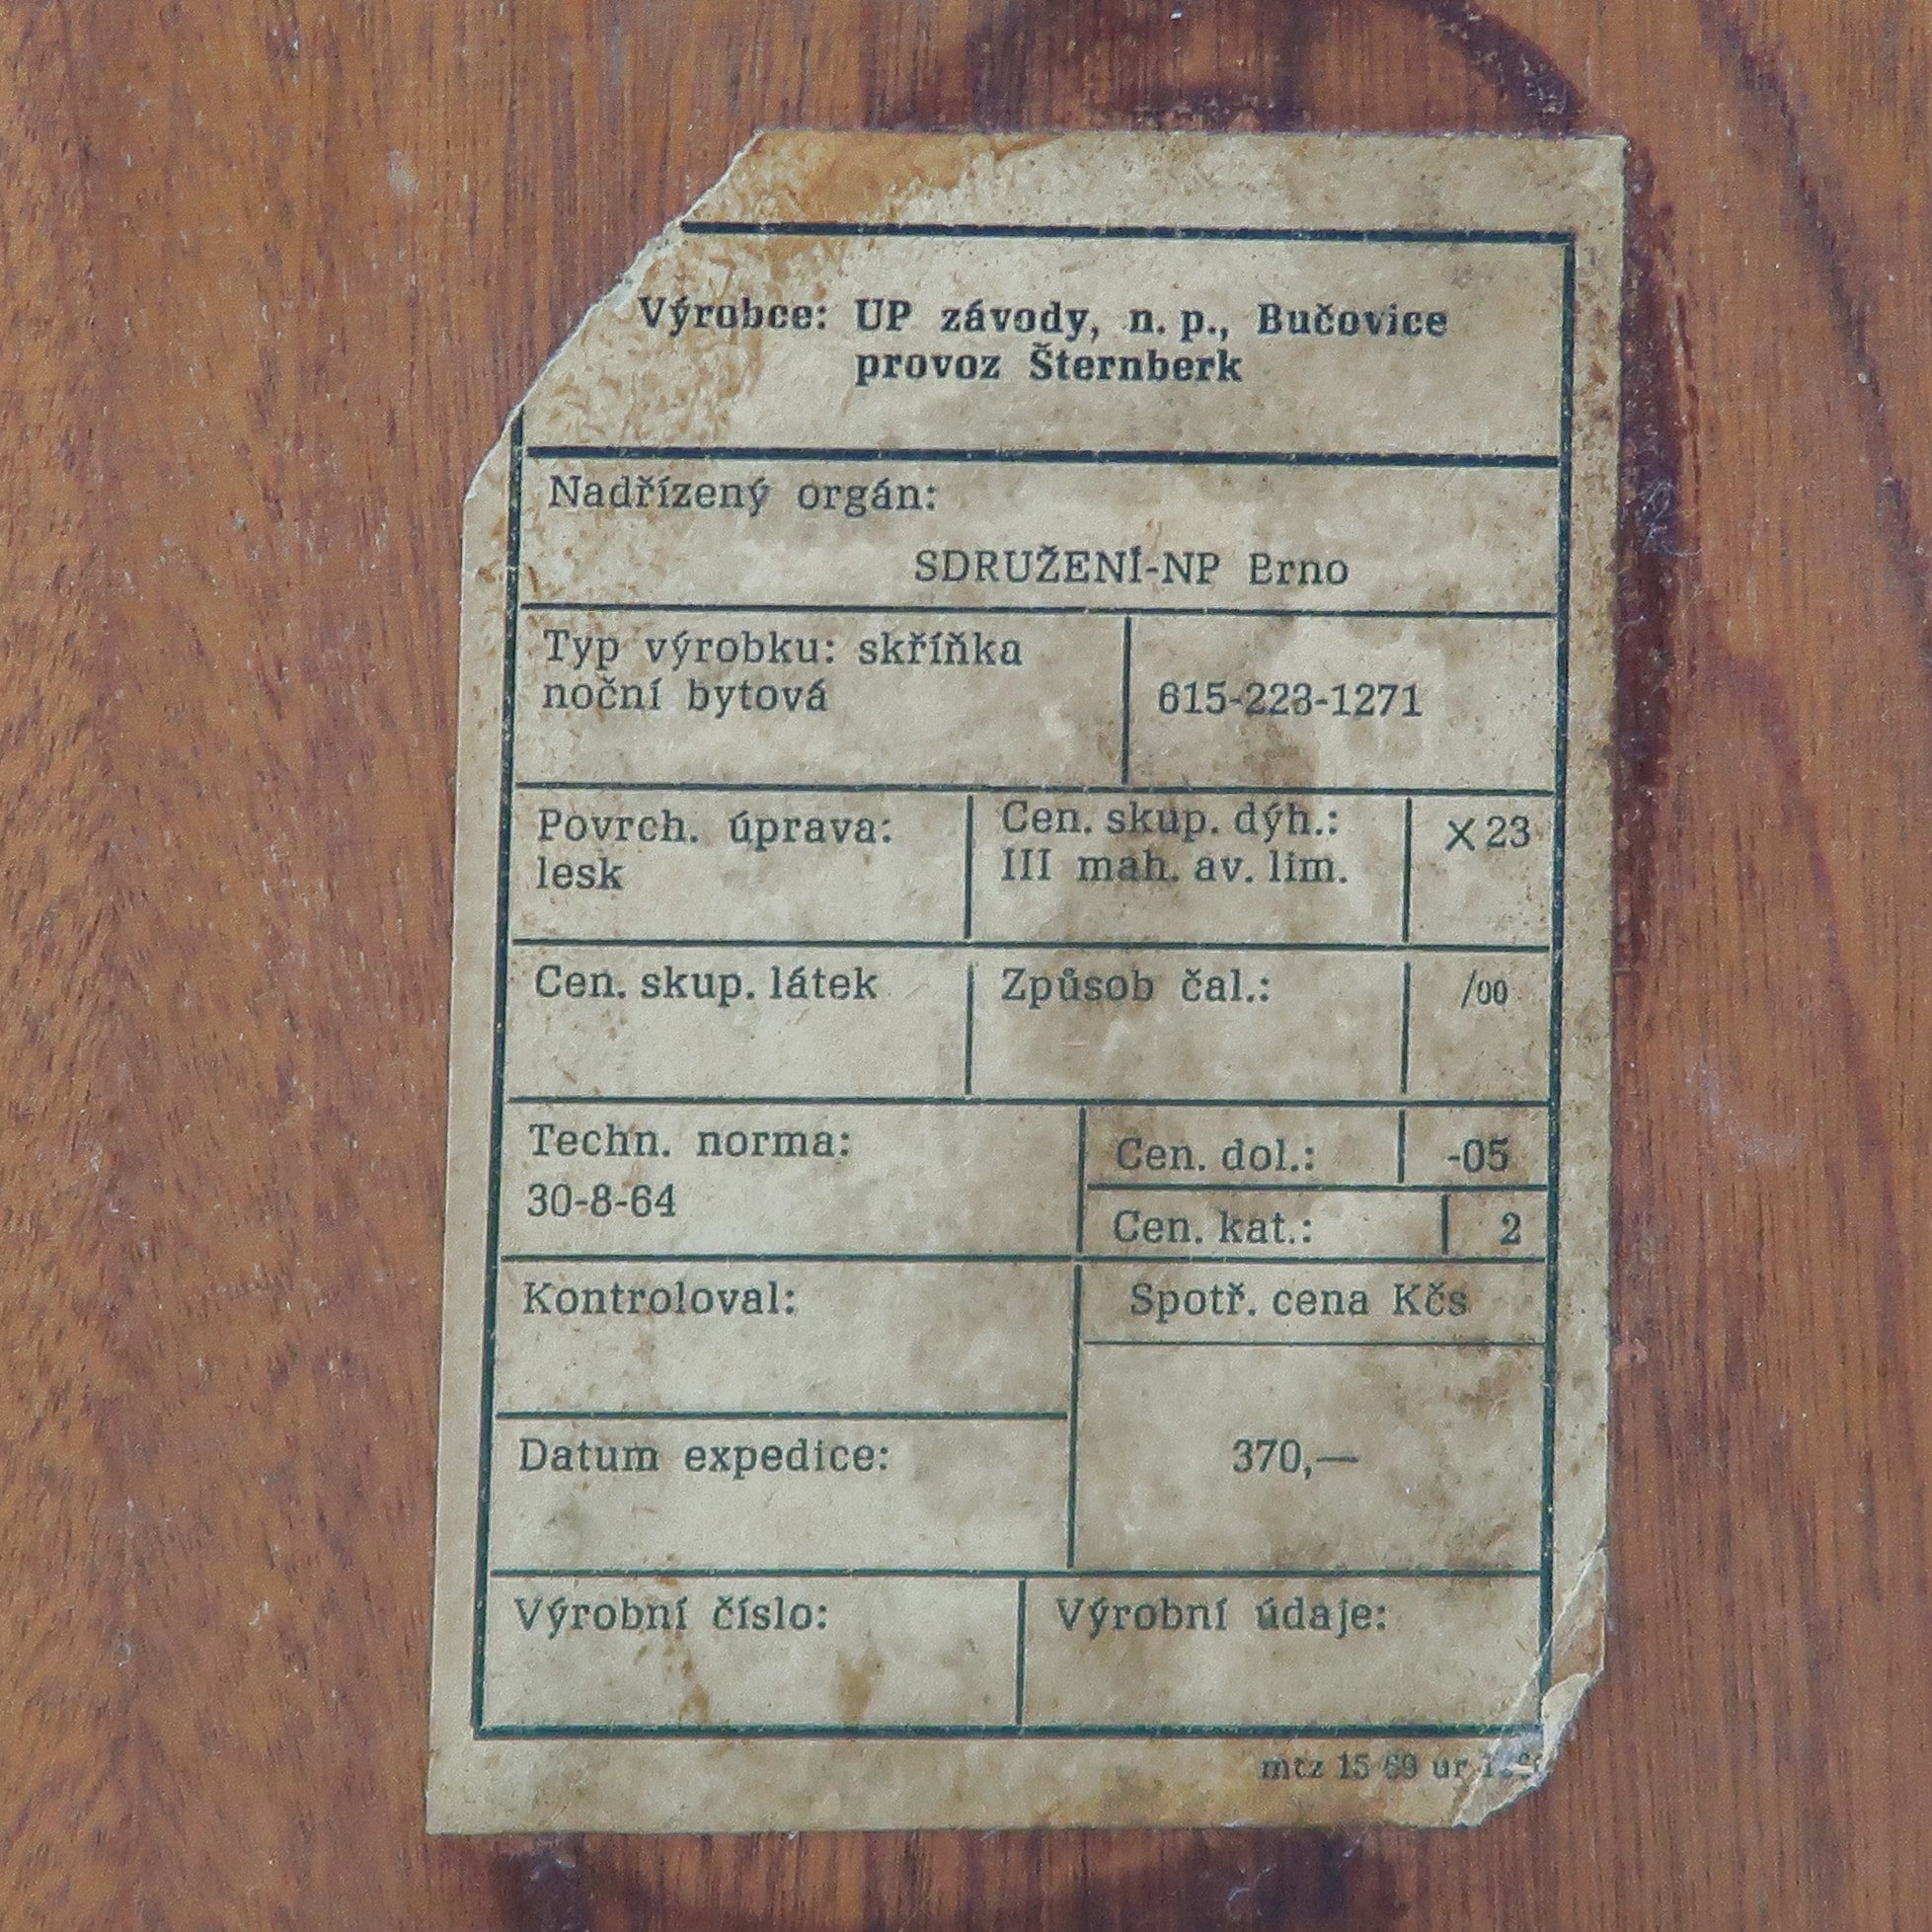 Výrobce: UP závody, n. p., Bučovice
provoz Šternberk
Nadřízený orgán:
SDRUŽENÍ-NP Brno
Typ výrobku: skříňka
noční bytová
615-223-1271
Povrch. úprava:
lesk
Cen. skup. dýh.:
III mah. av. lim.
X 23
Cen. skup. látek
Způsob čal.:
/00
Techn. norma:
30-8-64
Cen. dol.:
-05
Cen. kat.:
2
Kontroloval:
Spotř. cena Kčs
Datum expedice:
370,—
Výrobní číslo:
Výrobní údaje:
mtz 15 69 ur